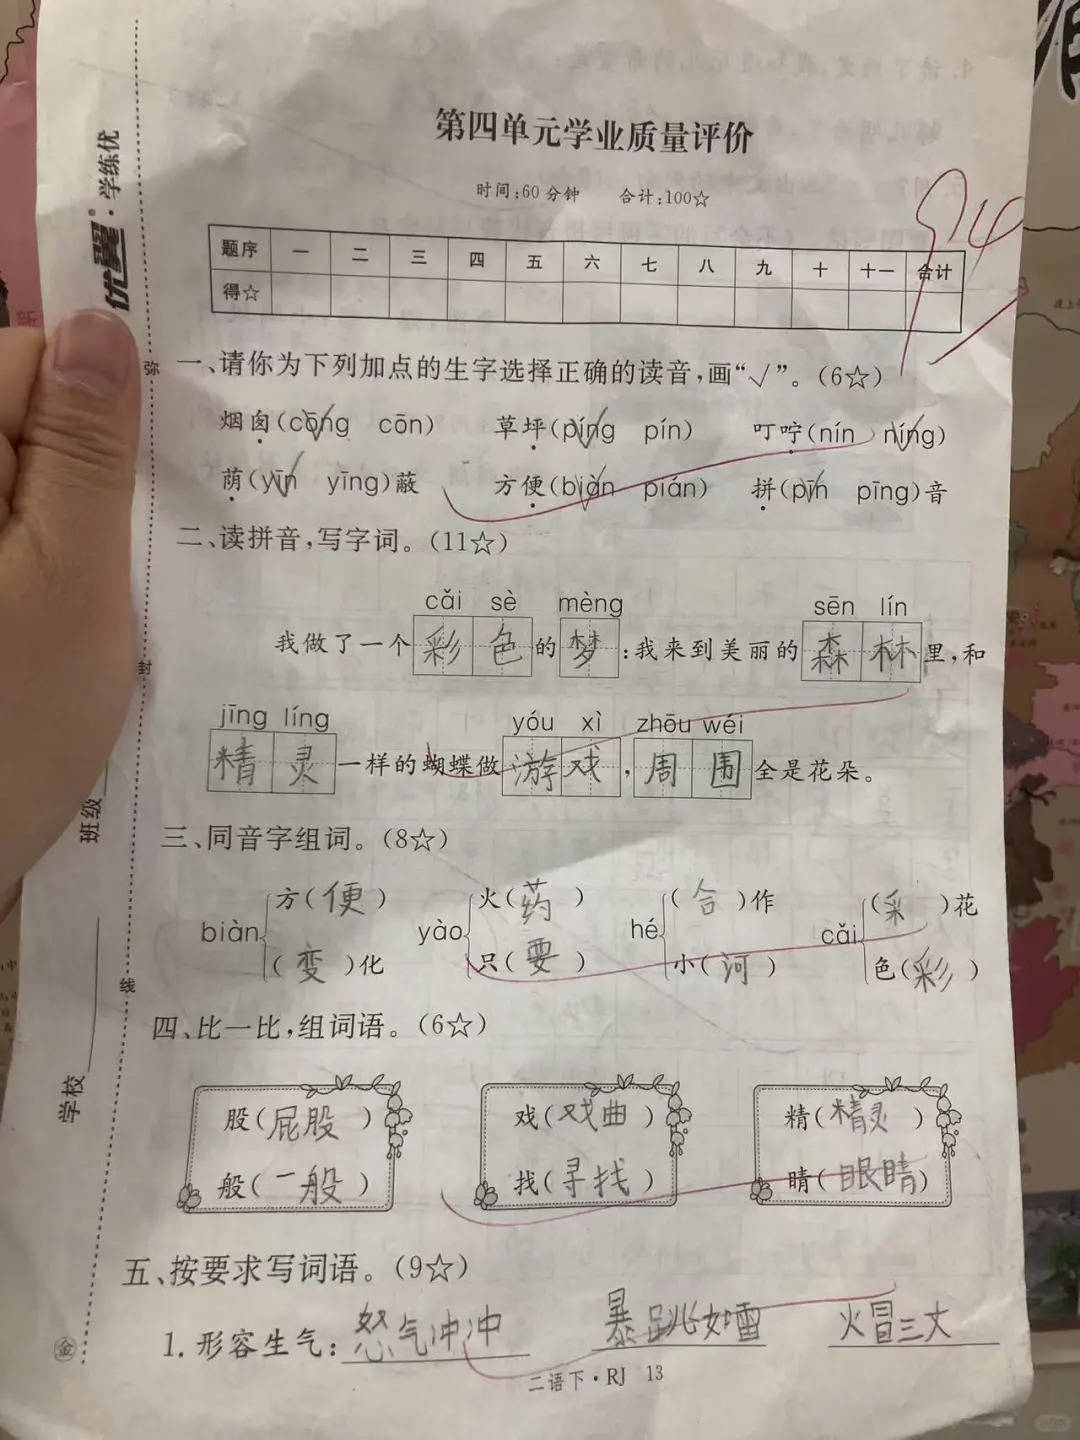 优翼·学练优
第四单元学业质量评价
时间:60分钟 合计:100☆
914
题序 一 二 三 四 五 六 七 八 九 十 十一 合计
得☆
一、请你为下列加点的生字选择正确的读音,画“√”。(6☆)
烟囱(cōng√ cōn) 草坪(píng√ pín) 叮咛(nín níng√)
荫(yīn√ yīng)蔽 方便(biàn√ pián) 拼(pīn√ pīng)音
二、读拼音,写字词。(11☆)
cǎi sè mèng sēn lín
我做了一个彩色的梦:我来到美丽的森林里,和
jīng líng yóu xì zhōu wéi
精灵一样的蝴蝶做游戏,周围全是花朵。
三、同音字组词。(8☆)
方(便) 火(药) (合)作 (采)花
biàn yào hé cǎi
(变)化 只(要) 小(河) 色(彩)
四、比一比,组词语。(6☆)
股(屁股) 戏(戏曲) 精(精灵)
般(一般) 找(寻找) 睛(眼睛)
五、按要求写词语。(9☆)
1.形容生气:怒气冲冲 暴跳如雷 火冒三丈
二语下·RJ 13
学校 班级
弥 封 线
金